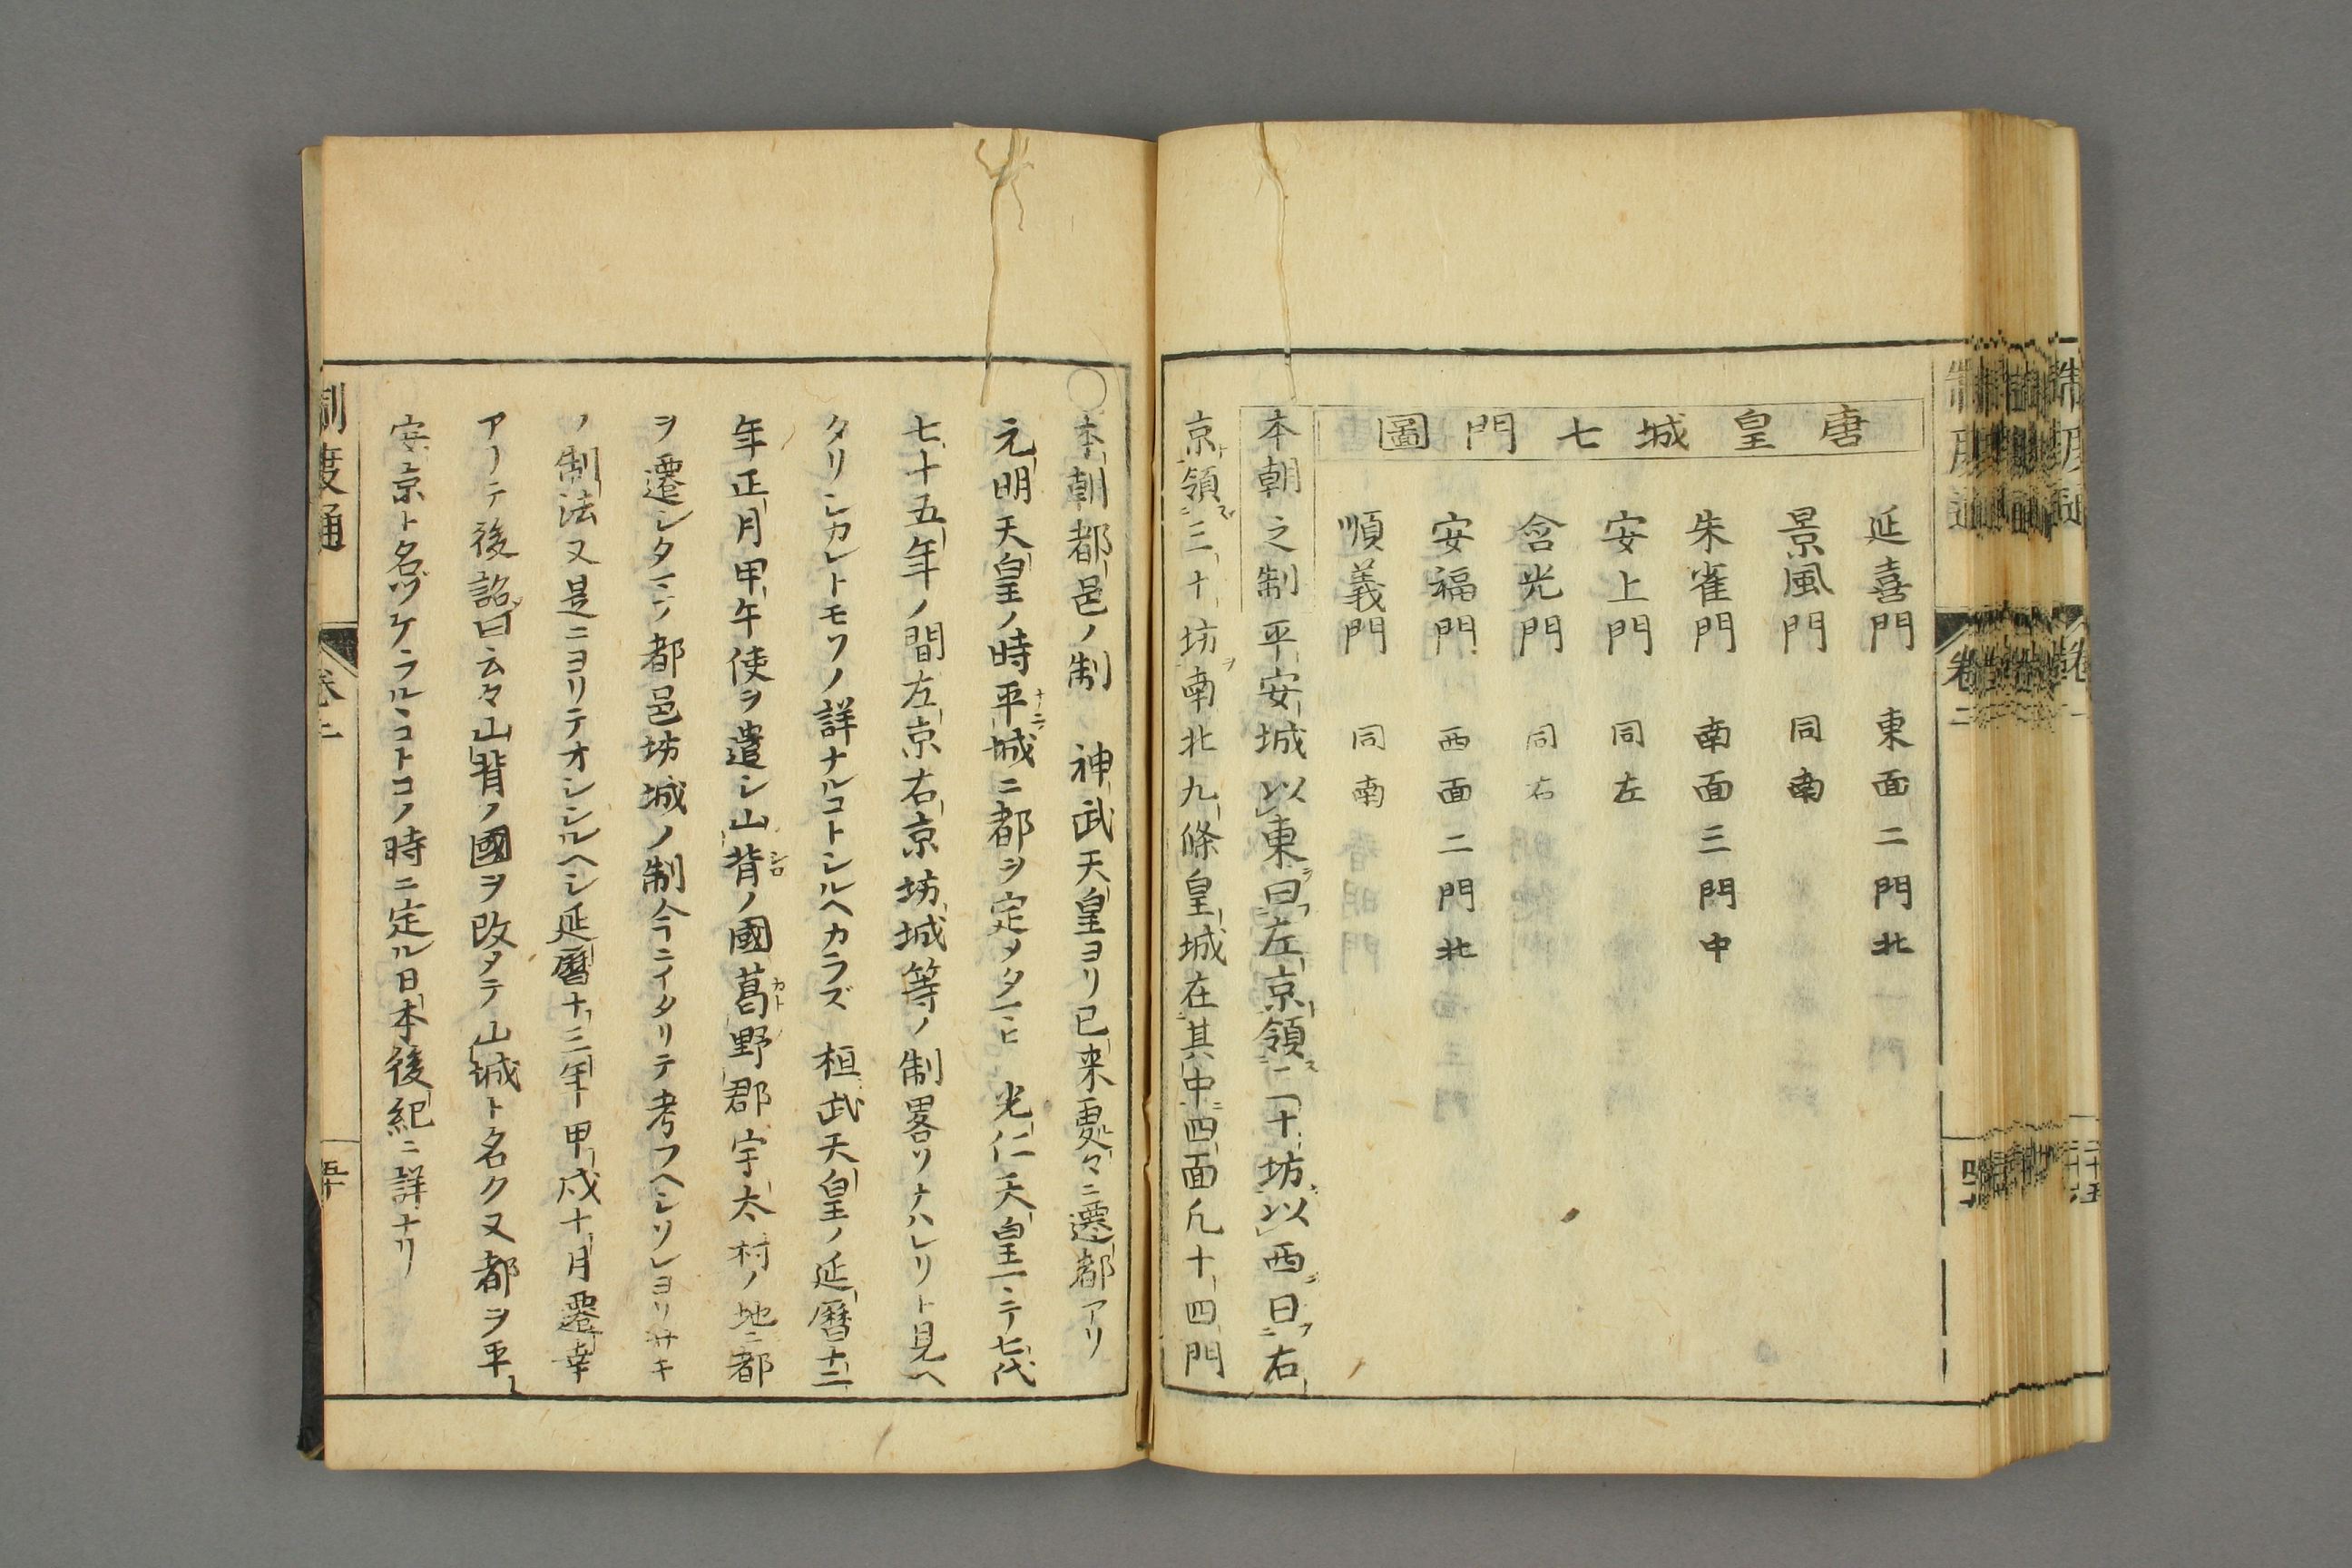 唐皇城七門圖
延喜門 東面二門北
景風門 同南
朱雀門 南面三門中
安上門 同左
含光門 同右
安福門 西面二門北
順義門 同南
本朝之制平安城以東曰左京領二十坊以西曰右
京領三十坊南北九條皇城在其中四面凡十四門
○本朝都邑ノ制 神武天皇ヨリ已来更々ニ遷都アリ
元明天皇ノ時平城ニ都ヲ定メタマヒ 光仁天皇マテ七代
七十五年ノ間左京右京坊城等ノ制畧ソナハレリト見ヘ
タリシカレトモソノ詳ナルコトシルヘカラズ 桓武天皇ノ延曆十二
年正月甲午使ヲ遣シ山背ノ國葛野郡宇太村ノ地ニ都
ヲ遷シタマフ都邑坊城ノ制今ニイタリテ考フヘシソレヨリサキ
ノ制法又是ニヨリテオシシルヘシ延曆十三年甲戌十月遷幸
アリテ後詔曰云々山背ノ國ヲ改メテ山城ト名ク又都ヲ平
安京ト名ヅケラルルコトコノ時ニ定ル日本後紀ニ詳ナリ
制度通
卷二